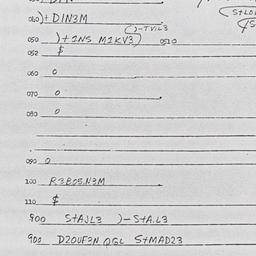 040 )+ DIN3M
()-TVIL3
050 )+1NS M1KV3) 0510
052 $
060 0
070 0
080 0
090 0
100 R3BOSN3M
110 $
800 S+AJL3 )-S+A.L3
900 DZOUF3N QGL S+MAD23